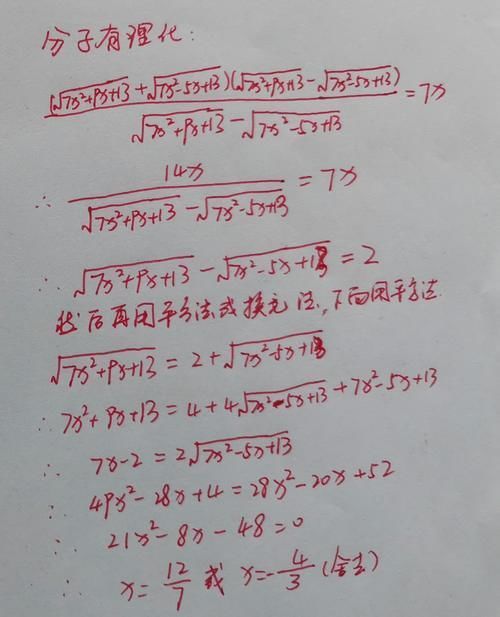 分子有理化:
(√7x²+9x+13 + √7x²-5x+13)(√7x²+9x+13 - √7x²-5x+13) / √7x²+9x+13 - √7x²-5x+13 = 7x
∴ 14x / √7x²+9x+13 - √7x²-5x+13 = 7x
∴ √7x²+9x+13 - √7x²-5x+13 = 2
然后再用平方法或换元法,下面用平方法.
√7x²+9x+13 = 2+√7x²-5x+13
∴ 7x²+9x+13 = 4+4√7x²-5x+13 + 7x²-5x+13
∴ 7x-2 = 2√7x²-5x+13
∴ 49x²-28x+4 = 28x²-20x+52
∴ 21x²-8x-48=0
∴ x= 12/7 或 x=-4/3 (舍去)